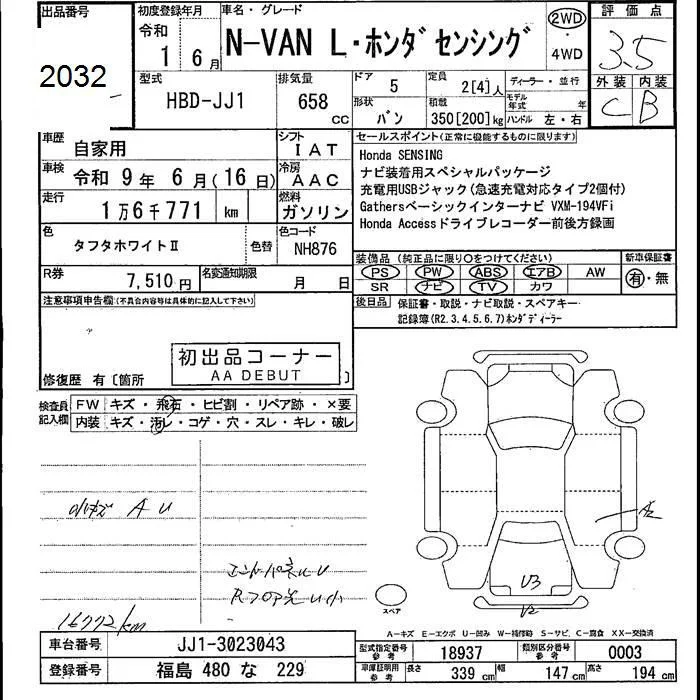 出品番号
2032
初度登録年月
令和
1 6月
車名・グレード
N-VAN L・ホンダセンシング
2WD
・
4WD
評価点
3.5
外装 内装
C B
型式
HBD-JJ1
排気量
658
cc
ドア
5
定員
2[4]人
ディーラー・並行
形状
バン
積載
350[200]kg
モデル年式 年
ハンドル 左・右
車歴
自家用
シフト
IAT
車検
令和 9年 6月(16日)
冷房
AAC
走行
1万6千771 km
燃料
ガソリン
色
タフタホワイトⅡ
色替
色コード
NH876
R券
7,510円
名変通知期限
月 日
注意事項申告欄(不具合内容等は具体的に記入して下さい)
初出品コーナー
AA DEBUT
修復歴 有〔箇所 〕
セールスポイント(正常に機能するものに限ります)
Honda SENSING
ナビ装着用スペシャルパッケージ
充電用USBジャック(急速充電対応タイプ2個付)
Gathersベーシックインターナビ VXM-194VFi
Honda Accessドライブレコーダー前後方録画
装備品(純正品に限り○をつけてください)
PS PW ABS エアB AW
SR ナビ TV カワ
新車保証書
有・無
後日品
保証書・取説・ナビ取説・スペアキー
記録簿(R2.3.4.5.6.7)ホンダディーラー
検査員記入欄
FW キズ・飛石・ヒビ割・リペア跡・×要
内装 キズ・汚レ・コゲ・穴・スレ・キレ・破レ
小キズ A U
エンドパネルU
16772km
A2
U3
U2
スペア
A-キズ E-エクボ U-凹み W-補修跡 S-サビ、C-腐食 XX-交換済
車台番号
JJ1-3023043
型式指定番号
参考
18937
類別区分番号
参考
0003
登録番号
福島 480 な 229
車庫証明用
参考
長さ
339 cm
幅
147 cm
高さ
194 cm